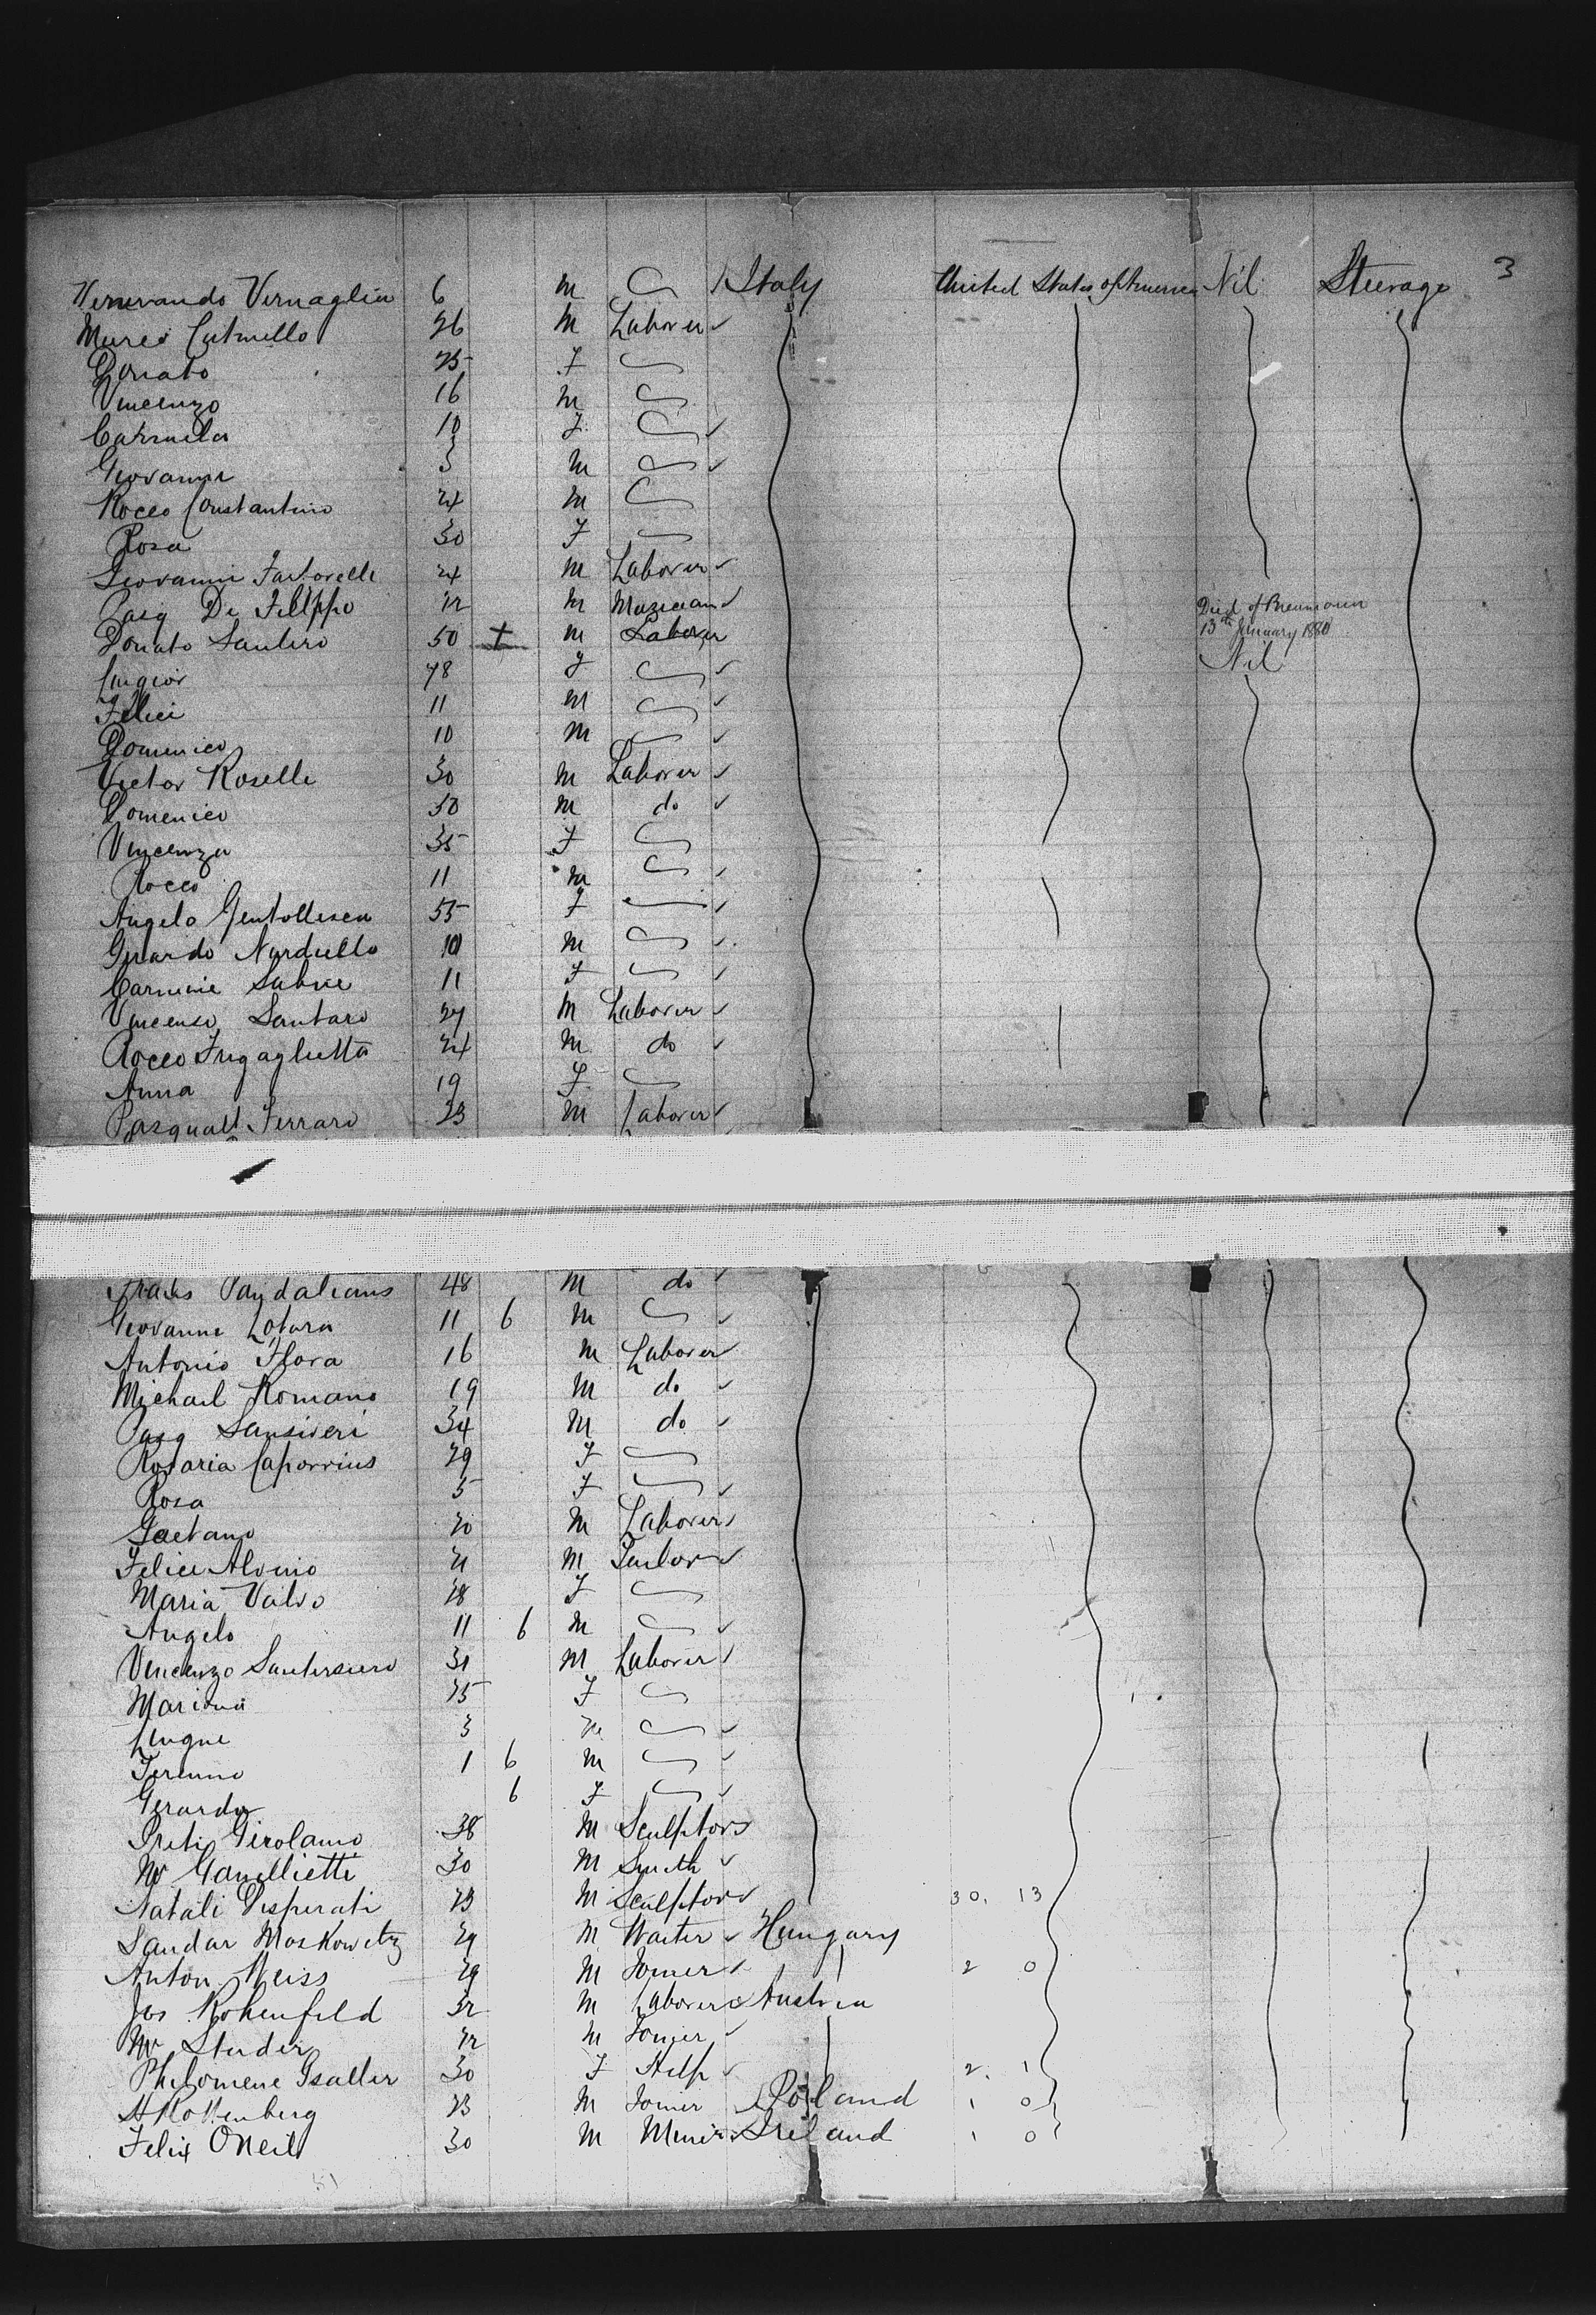 3
Venerando Vernaglia 6 m Italy United States of America Nil Steerage
Mureo Cutruello 26 m Laborer
Donato 25 F
Vincenzo 16 m
Carmela 10 F
Giovanni 3 m
Rocco Constantino 24 m
Rosa 30 F
Giovanni Fastorelli 24 m Laborer
Pasq De Filippo 42 m Muzician
Donato Santiro 50 + m Laborer Died of Pneumonia 13th January 1880
F Nil
Felici 11 m
Domenico 10 m
Victor Roselli 30 m Laborer
Domenico 50 m do
Vincenza 35 F
Rocco 11 m
Angelo Gentollesca 55 F
Girardo Nardiello 10 m
Carmine Sabia 11 F
Vincenso Santaro 27 m Laborer
Rocco Frigaglietta 24 m do
Anna 19 F
Pasquall Ferraro 23 m Laborer
48 m do
Giovanni Lotara 11 6 m
Antonio Flora 16 m Laborer
Michail Romano 19 m do
Pasq Sansiveri 34 m do
Rosaria Caporrius 29 F
Rosa 5 F
Gaetano 20 m Laborer
Felice Alonio 21 m
Maria Valvo 28 F
Angelo 11 6 m
Vincenzo Santersiero 31 m Laborer
Mariana 25 F
3 m
1 6 m
Gerarda 6 F
Preti Girolamo 38 m Sculptors
Mr Ganelliette 30 m Smith
Natali Disperati 23 m Sculptor 30. 13
Sandar Moskowitz 29 m Waiter Hungary
Anton Weiss 29 m Joiner 2 0
Jos Rohenfeld 32 m Laborer Austria
Mr Studer 42 m Joiner
Philomene Gsaller 30 F Help 2. 1
A Rottenberg 23 m Joiner Poland 1 0
Felix ONeill 30 m Miner Ireland 1 0